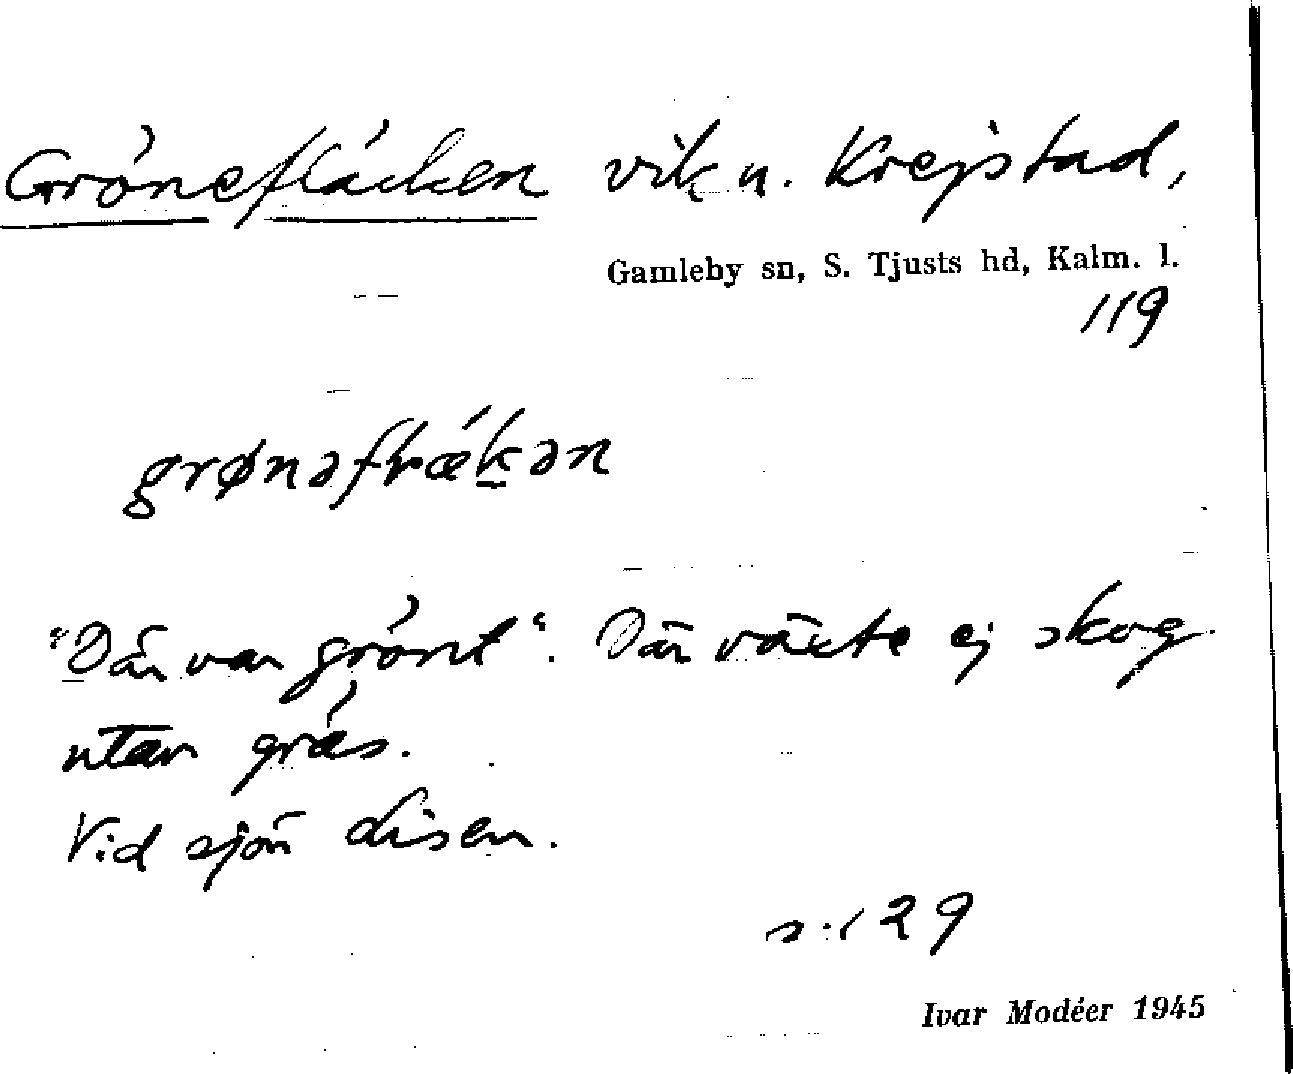 Grönefläcken vik u. Krejstad,
Gamleby sn, S. Tjusts hd, Kalm. l.
119
grønəflækən
"Där var grönt". Där växte ej skog
utan gräs.
Vid sjön disen.
s. 129
Ivar Modéer 1945